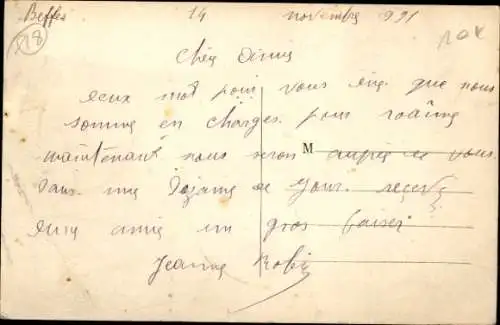 Beffes 14 novembre 921
218 10K
Chèr Amis
deux mot pour vous dire que nous
somme en charges pour roanne
maintenant nous seron auprès de vous
M
dans une dizaine de jour. recevez
cher amie un gros baiser
Jeanne Robin